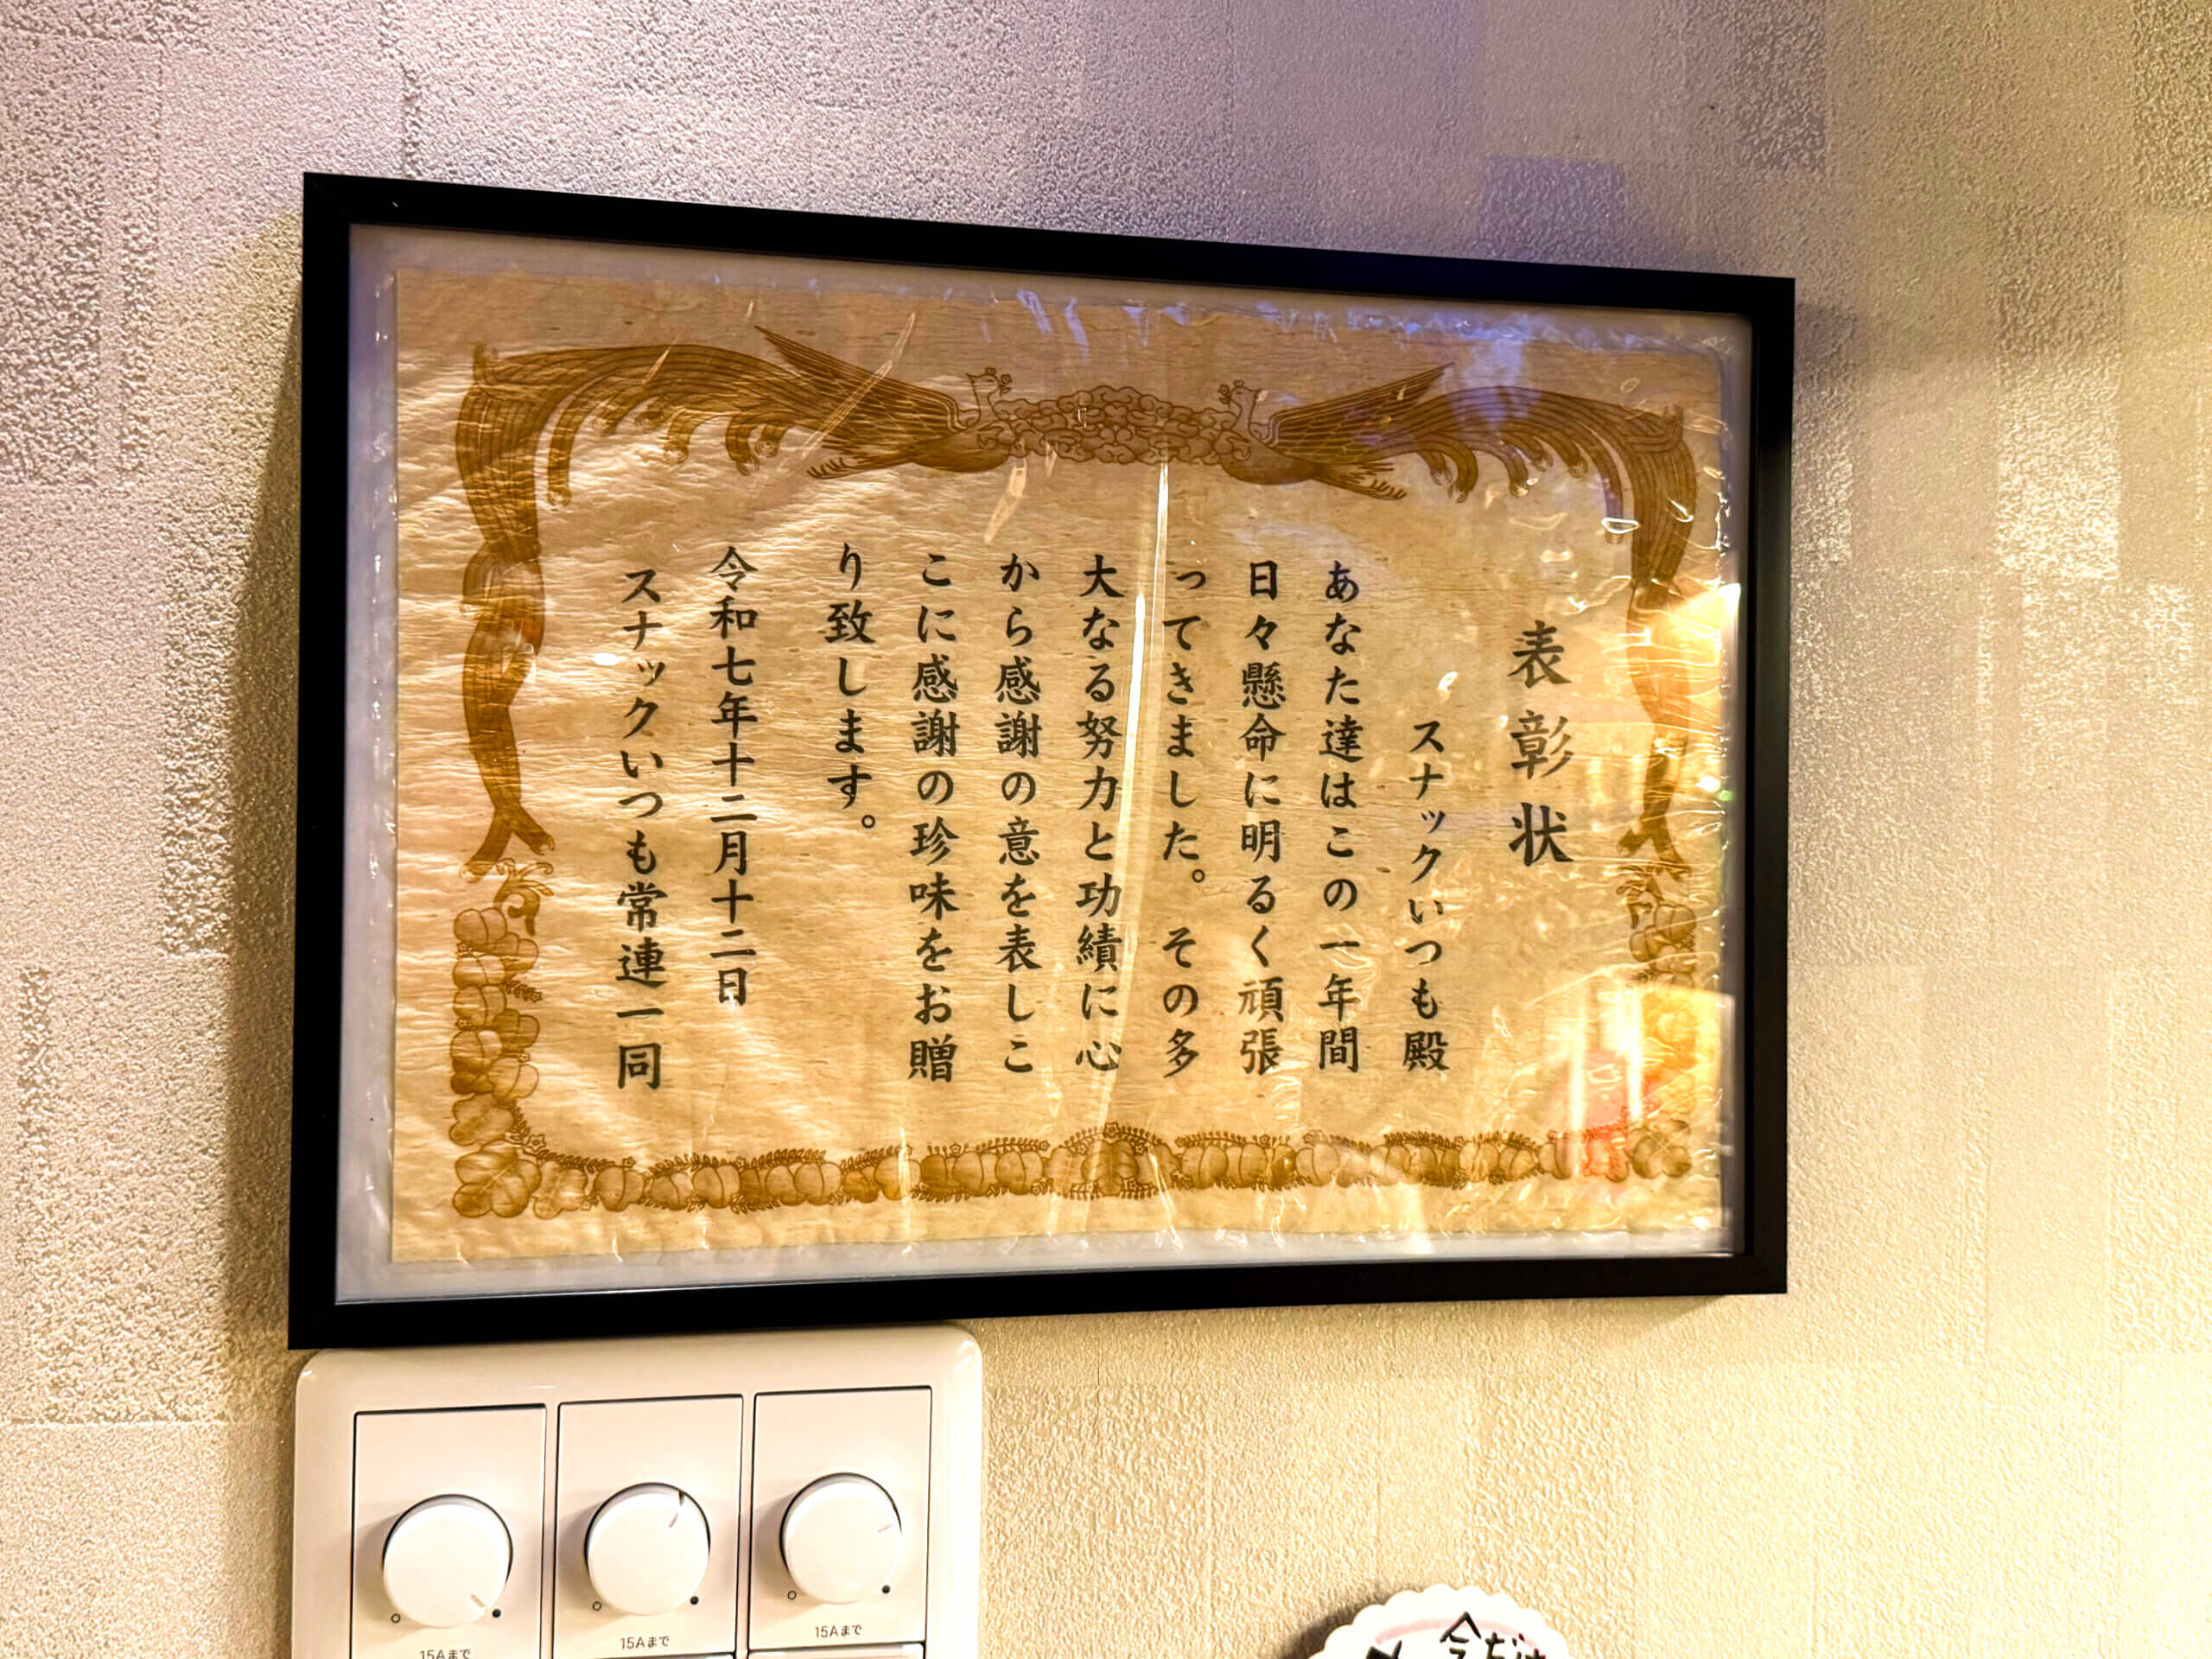 表彰状
スナックいつも殿
あなた達はこの一年間
日々懸命に明るく頑張
ってきました。その多
大なる努力と功績に心
から感謝の意を表しこ
こに感謝の珍味をお贈
り致します。
令和七年十二月十二日
スナックいつも常連一同
15Aまで
15Aまで
15Aまで